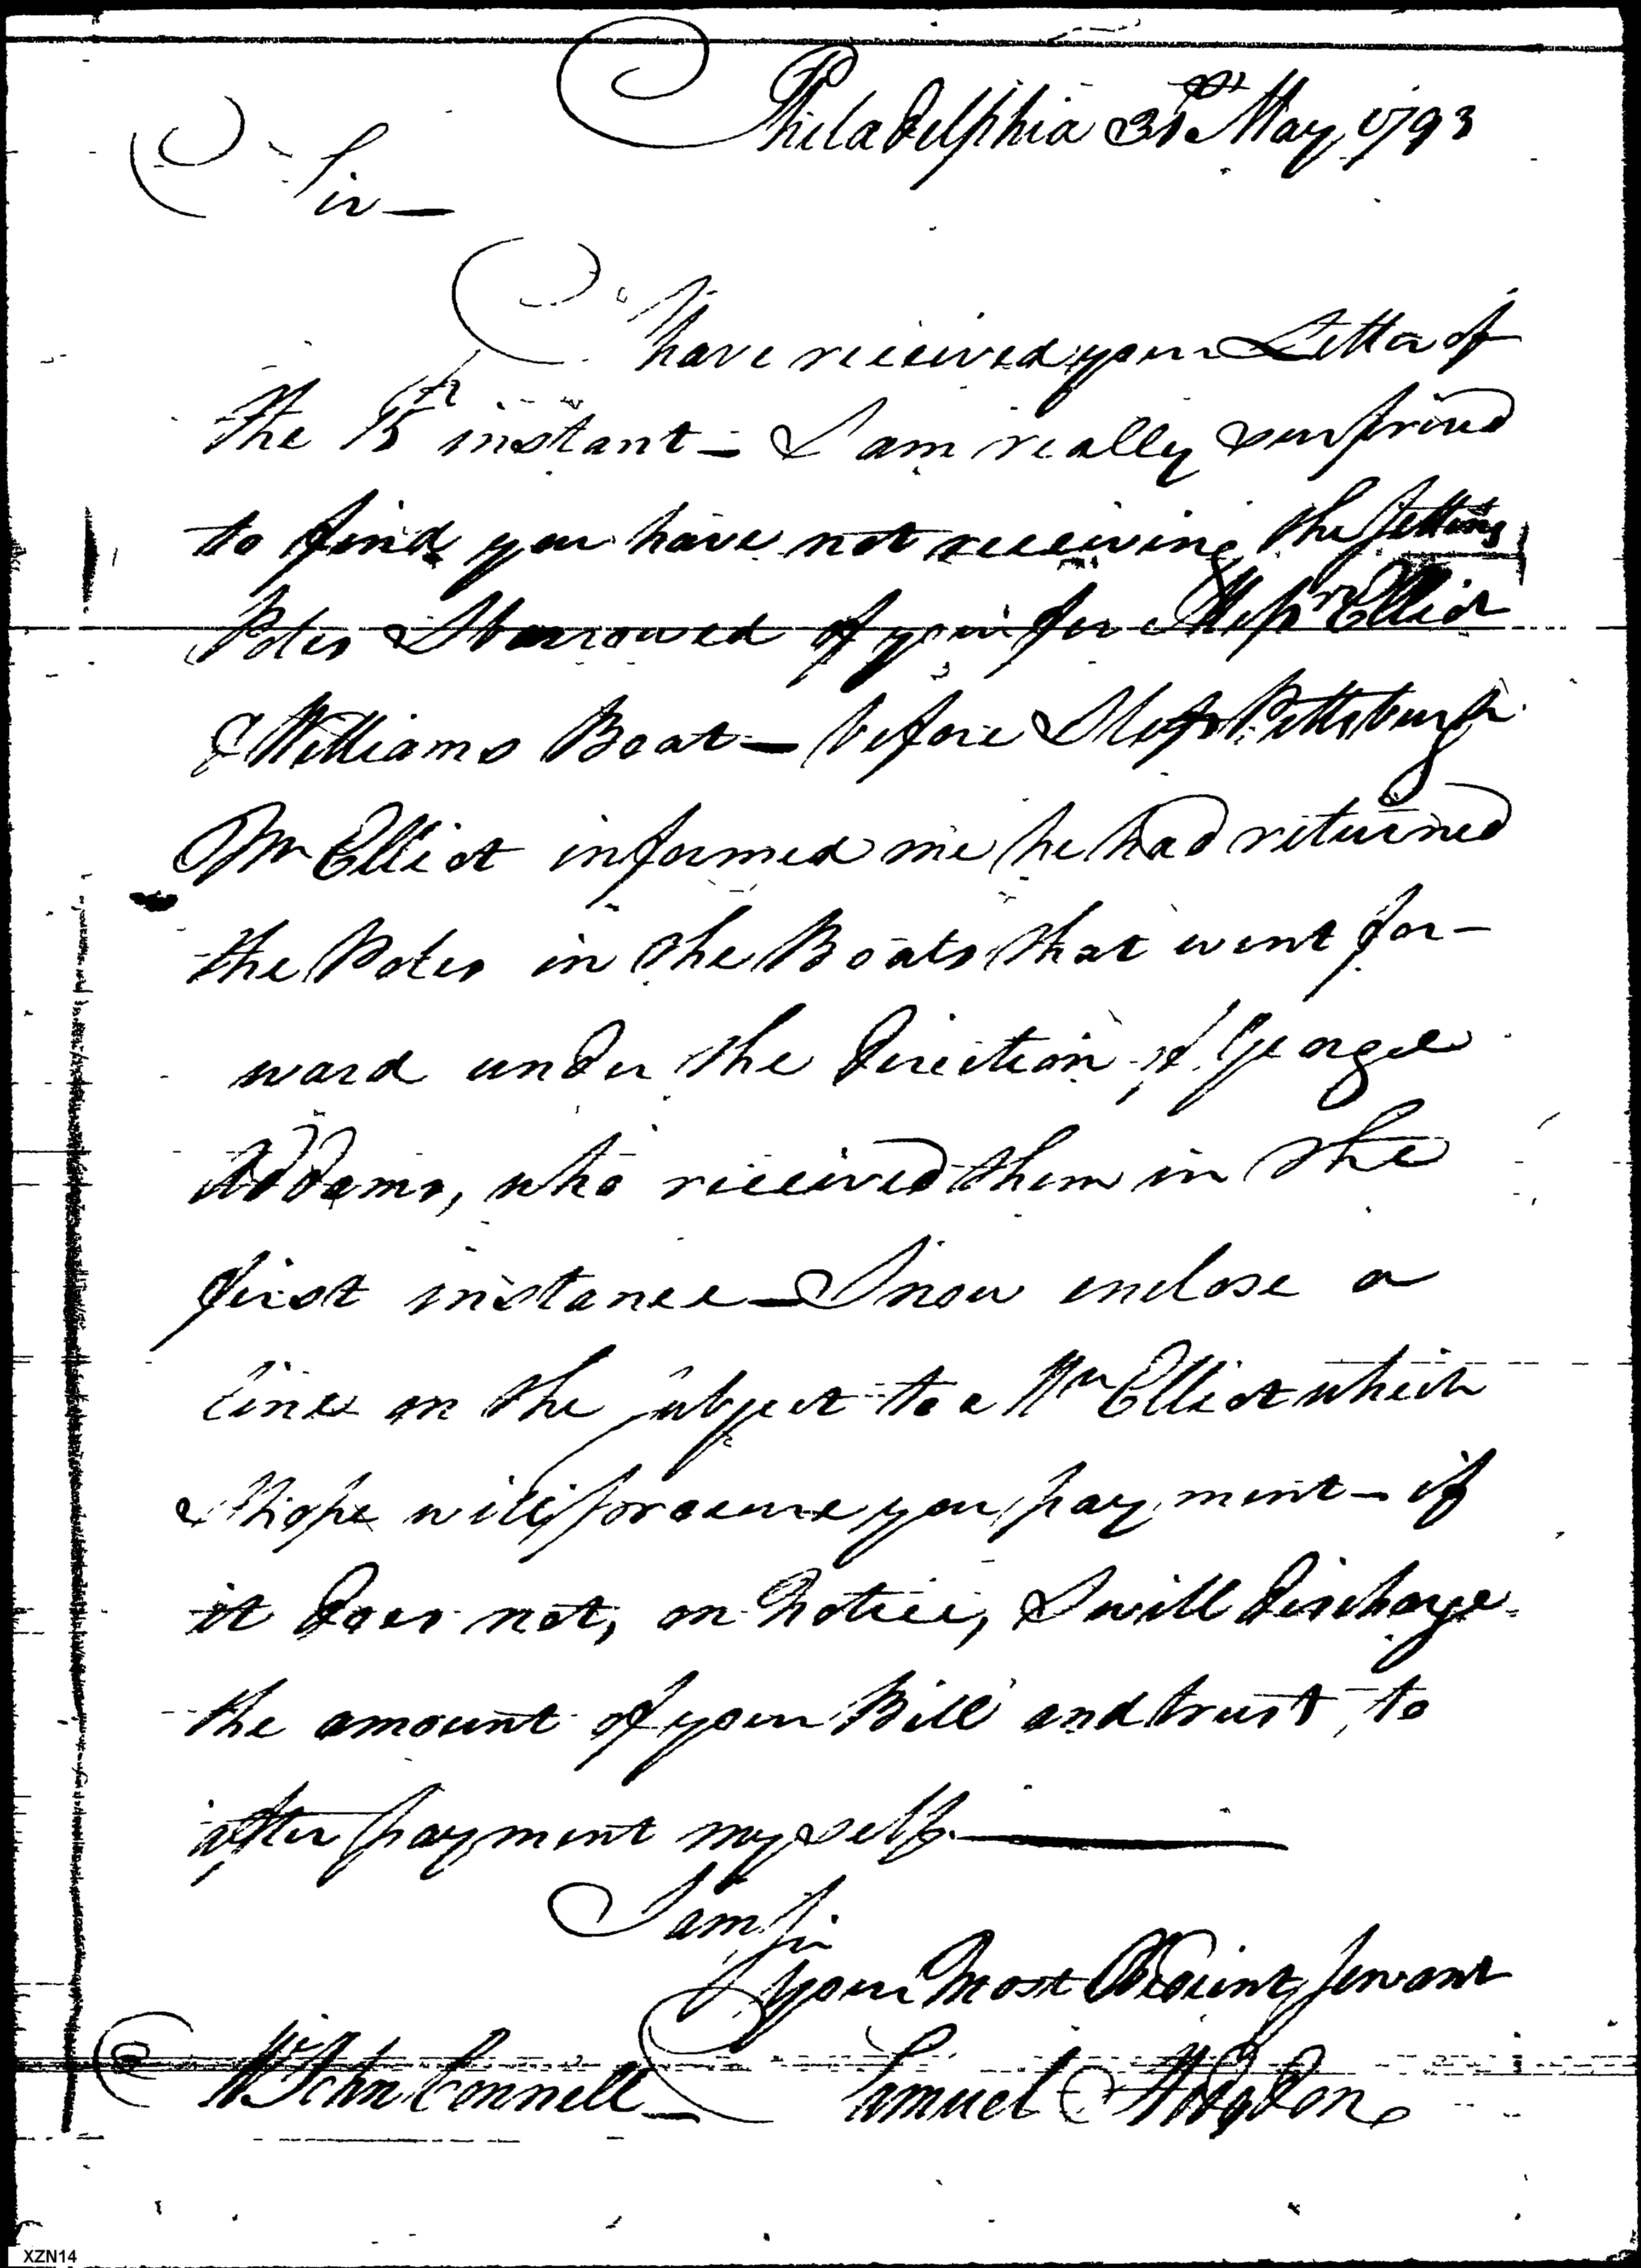 Philadelphia 31st May 1793
Sir —
I have received your Letter of
the 15th instant — I am really surprised
to find you have not receiving the Setting
Poles I borrowed of you for Messrs Elliot
& Williams Boat — before I left Pittsburgh
Mr Elliot informed me he had returned
the Poles in the Boats that went for-
ward under the direction of George
Addams, who received them in the
first instance — I now enclose a
line on the subject to Mr Elliot which
I hope will procure you payment — if
it does not, on Notice, I will discharge
the amount of your Bill and trust to
after payment myself. —
I am Sir
your Most Obedient Servant
Mr John Connell — Samuel Hodgdon
XZN14